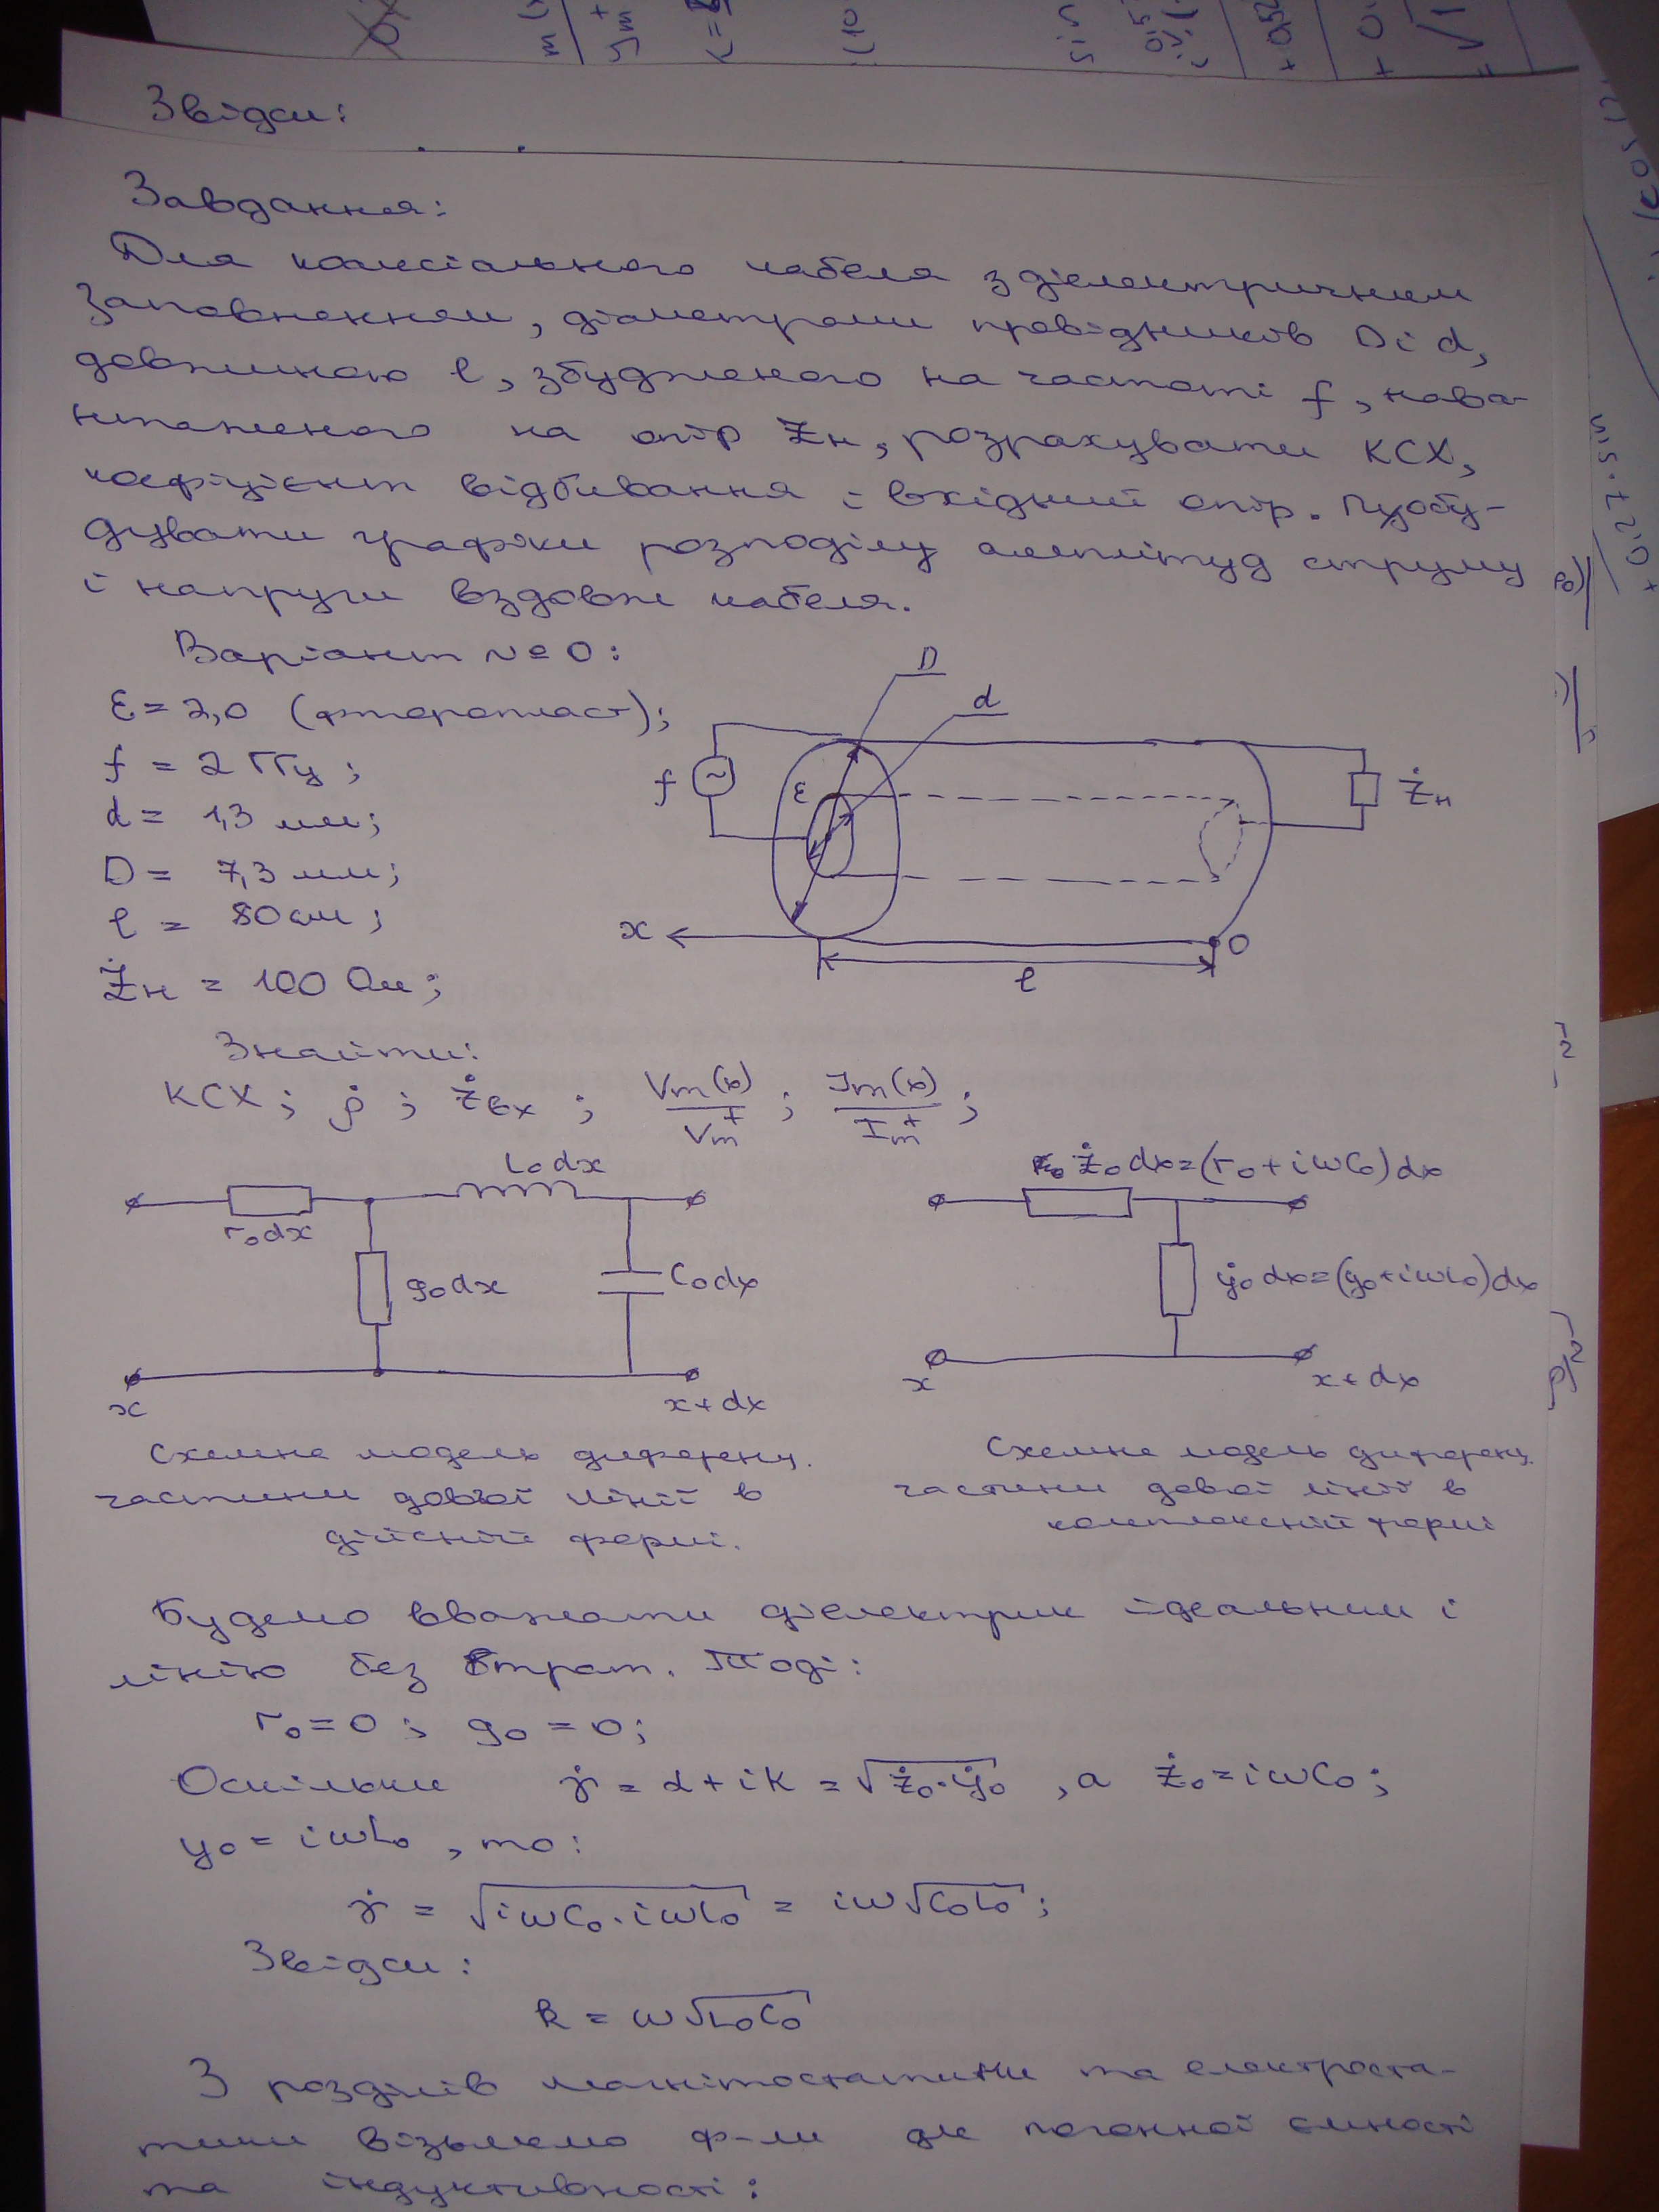 Звідси:
Завдання:
Для коаксіального кабеля з діелектричним
заповненням, діаметрами провідників D і d,
довжиною l, збудженого на частоті f, нава-
нтаженого на опір Żн, розрахувати КСХ,
коефіцієнт відбивання і вхідний опір. Побу-
дувати графіки розподілу амплітуд струму
і напруги вздовж кабеля.
Варіант №0:
ε = 2,0 (фторопласт);
f = 2 ГГц;
d = 1,3 мм;
D = 7,3 мм;
l = 80 см;
Żн = 100 Ом;
D
d
f
~
ε
Żн
x
l
0
Знайти:
КСХ; ρ̇; Żвх; Vm(x)/Vm⁺; Im(x)/Im⁺;
L₀dx
r₀dx
g₀dx
C₀dx
x
x+dx
ż₀dx=(r₀+iωC₀)dx
ẏ₀dx=(g₀+iωL₀)dx
x
x+dx
Схемна модель диференц.
частини довгої лінії в
дійсній формі.
Схемна модель диференц.
частини довгої лінії в
комплексній формі
Будемо вважати діелектрик ідеальним і
лінію без втрат. Тоді:
r₀=0; g₀=0;
Оскільки γ̇ = α+ik = √(ż₀·ẏ₀), а ż₀=iωC₀;
y₀=iωL₀, то:
γ̇ = √(iωC₀·iωL₀) = iω√(C₀L₀);
Звідси:
k = ω√(L₀C₀)
З розділів магнітостатики та електроста-
тики візьмемо ф-ли для погонної ємності
та індуктивності: